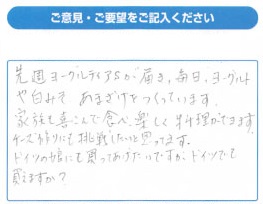 ご意見・ご要望をご記入ください
先週ヨーグルティアSが届き、毎日、ヨーグルト
や白みそ あまざけをつくっています。
家族も喜こんで食べ、楽しく料理ができます。
チーズ作りにも挑戦したいと思ってます。
ドイツの娘にも買ってあげたいですが、ドイツでも
買えますか？